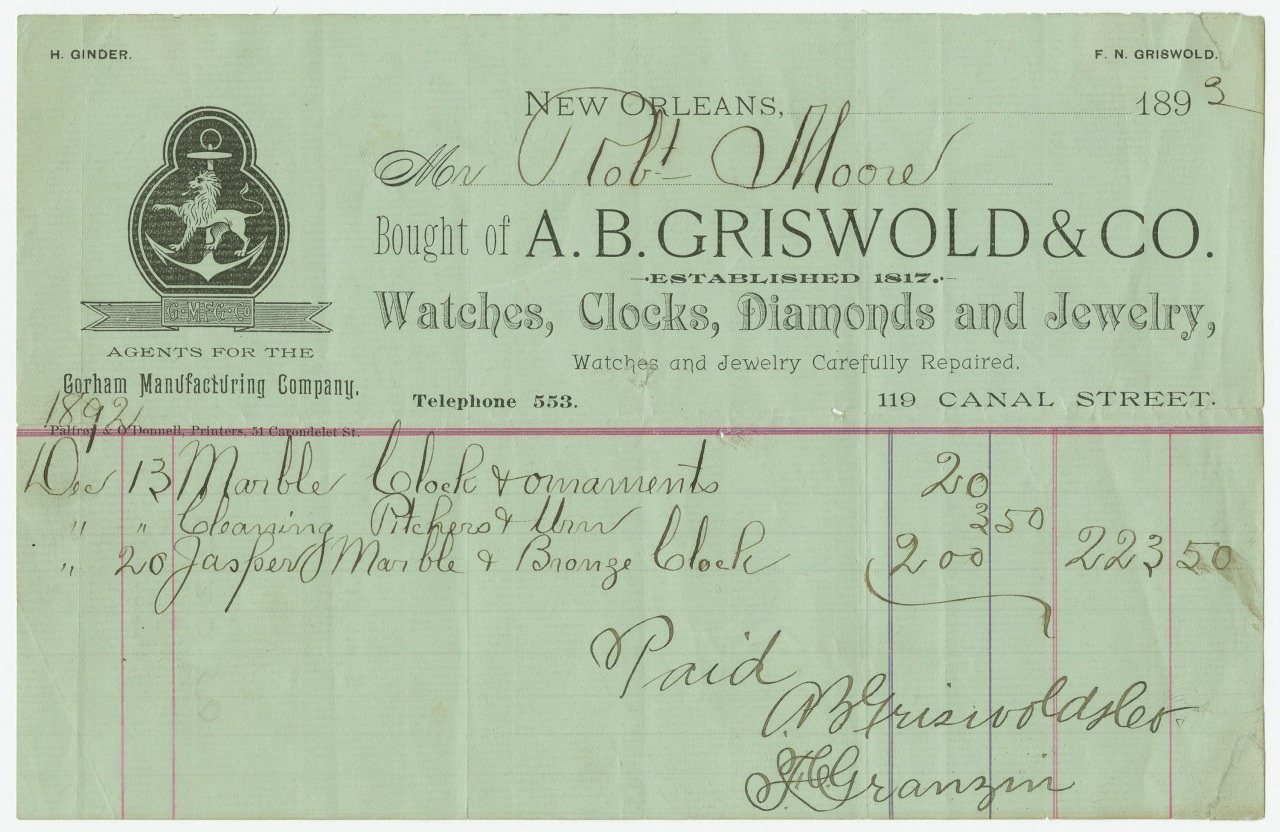 H. GINDER.
F. N. GRISWOLD.
NEW ORLEANS, 1893
Mr Robt Moore
Bought of A. B. GRISWOLD & CO.
ESTABLISHED 1817.
Watches, Clocks, Diamonds and Jewelry,
Watches and Jewelry Carefully Repaired.
Telephone 553. 119 CANAL STREET.
G. MFG. Co
AGENTS FOR THE
Gorham Manufacturing Company.
1892
Palfrey & O'Donnell, Printers, 51 Carondelet St.
Dec 13 Marble Clock & ornaments 20
" " Cleaning Pitchers & Urn 3 50
" 20 Jasper Marble & Bronze Clock 200 223 50
Paid
A B Griswold & Co
Granzin